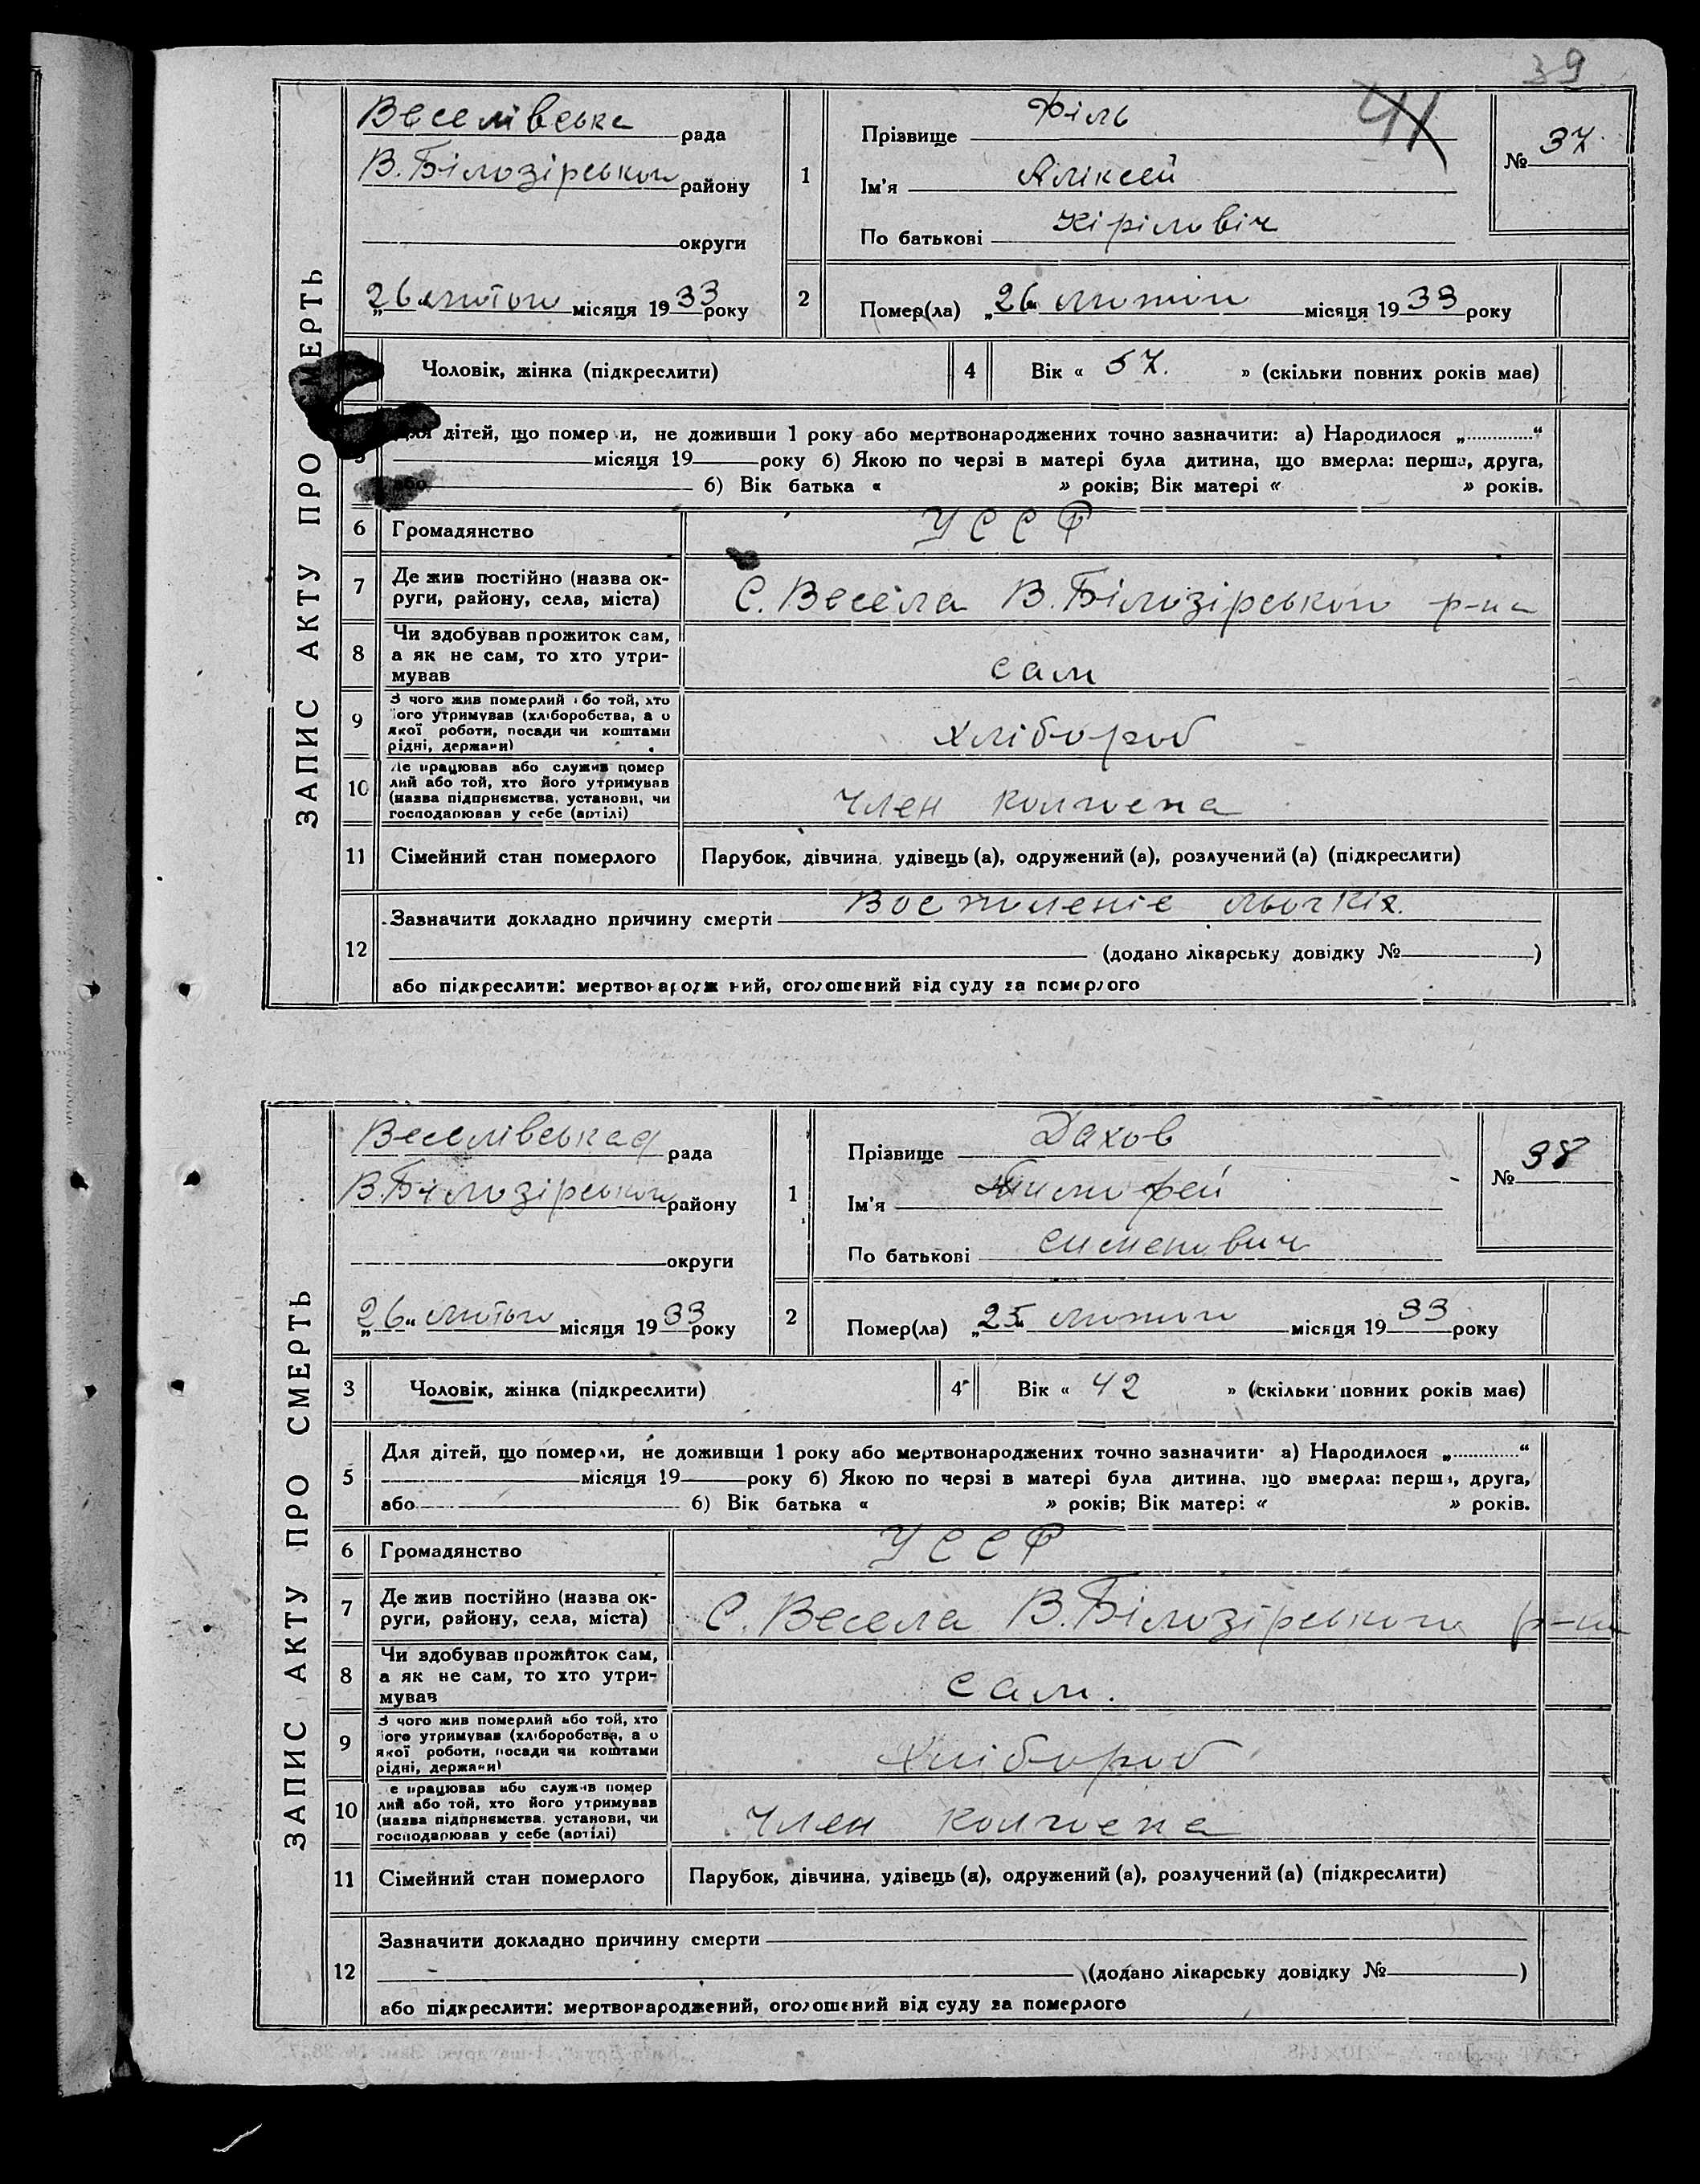 39
41
ЗАПИС АКТУ ПРО СМЕРТЬ
Веселівська рада
В.Білозірського району
округи
„26“ лютого місяця 1933 року
1
Прізвище Філь
Ім'я Аліксей
По батькові Кіріловіч
№ 37
2
Помер(ла) „26“ лютого місяця 1933 року
Чоловік, жінка (підкреслити)
4
Вік « 57. » (скільки повних років має)
5
Для дітей, що померли, не доживши 1 року або мертвонароджених точно зазначити: а) Народилося „............“
місяця 19 року б) Якою по черзі в матері була дитина, що вмерла: перша, друга,
або б) Вік батька « » років; Вік матері « » років.
6 Громадянство УССР
7 Де жив постійно (назва ок-
руги, району, села, міста) С. Весела В.Білозірського р-на
8 Чи здобував прожиток сам,
а як не сам, то хто утри-
мував сам
9 З чого жив померлий або той, хто
його утримував (хліборобства, а о
якої роботи, посади чи коштами
рідні, держави) хлібороб
10 Де працював або служив помер
лий або той, хто його утримував
(назва підприємства, установи, чи
господарював у себе (артілі) член колгоспа
11 Сімейний стан померлого Парубок, дівчина, удівець (а), одружений (а), розлучений (а) (підкреслити)
12 Зазначити докладно причину смерти Восполеніє льогкіх.
(додано лікарську довідку № )
або підкреслити: мертвонароджений, оголошений від суду за померлого
ЗАПИС АКТУ ПРО СМЕРТЬ
Веселівська рада
В.Білозірського району
округи
„26“ лютого місяця 1933 року
1
Прізвище Дахов
Ім'я Тимофей
По батькові Сименович
№ 38
2
Помер(ла) „25“ лютого місяця 1933 року
3 Чоловік, жінка (підкреслити)
4 Вік « 42 » (скільки повних років має)
5
Для дітей, що померли, не доживши 1 року або мертвонароджених точно зазначити: а) Народилося „............“
місяця 19 року б) Якою по черзі в матері була дитина, що вмерла: перша, друга,
або б) Вік батька « » років; Вік матері « » років.
6 Громадянство УССР
7 Де жив постійно (назва ок-
руги, району, села, міста) С. Весела В.Білозірського р-на
8 Чи здобував прожиток сам,
а як не сам, то хто утри-
мував сам.
9 З чого жив померлий або той, хто
його утримував (хліборобства, а о
якої роботи, посади чи коштами
рідні, держави) Хлібороб
10 Де працював або служив помер
лий або той, хто його утримував
(назва підприємства, установи, чи
господарював у себе (артілі) Член колгоспа
11 Сімейний стан померлого Парубок, дівчина, удівець (а), одружений (а), розлучений (а) (підкреслити)
12 Зазначити докладно причину смерти
(додано лікарську довідку № )
або підкреслити: мертвонароджений, оголошений від суду за померлого